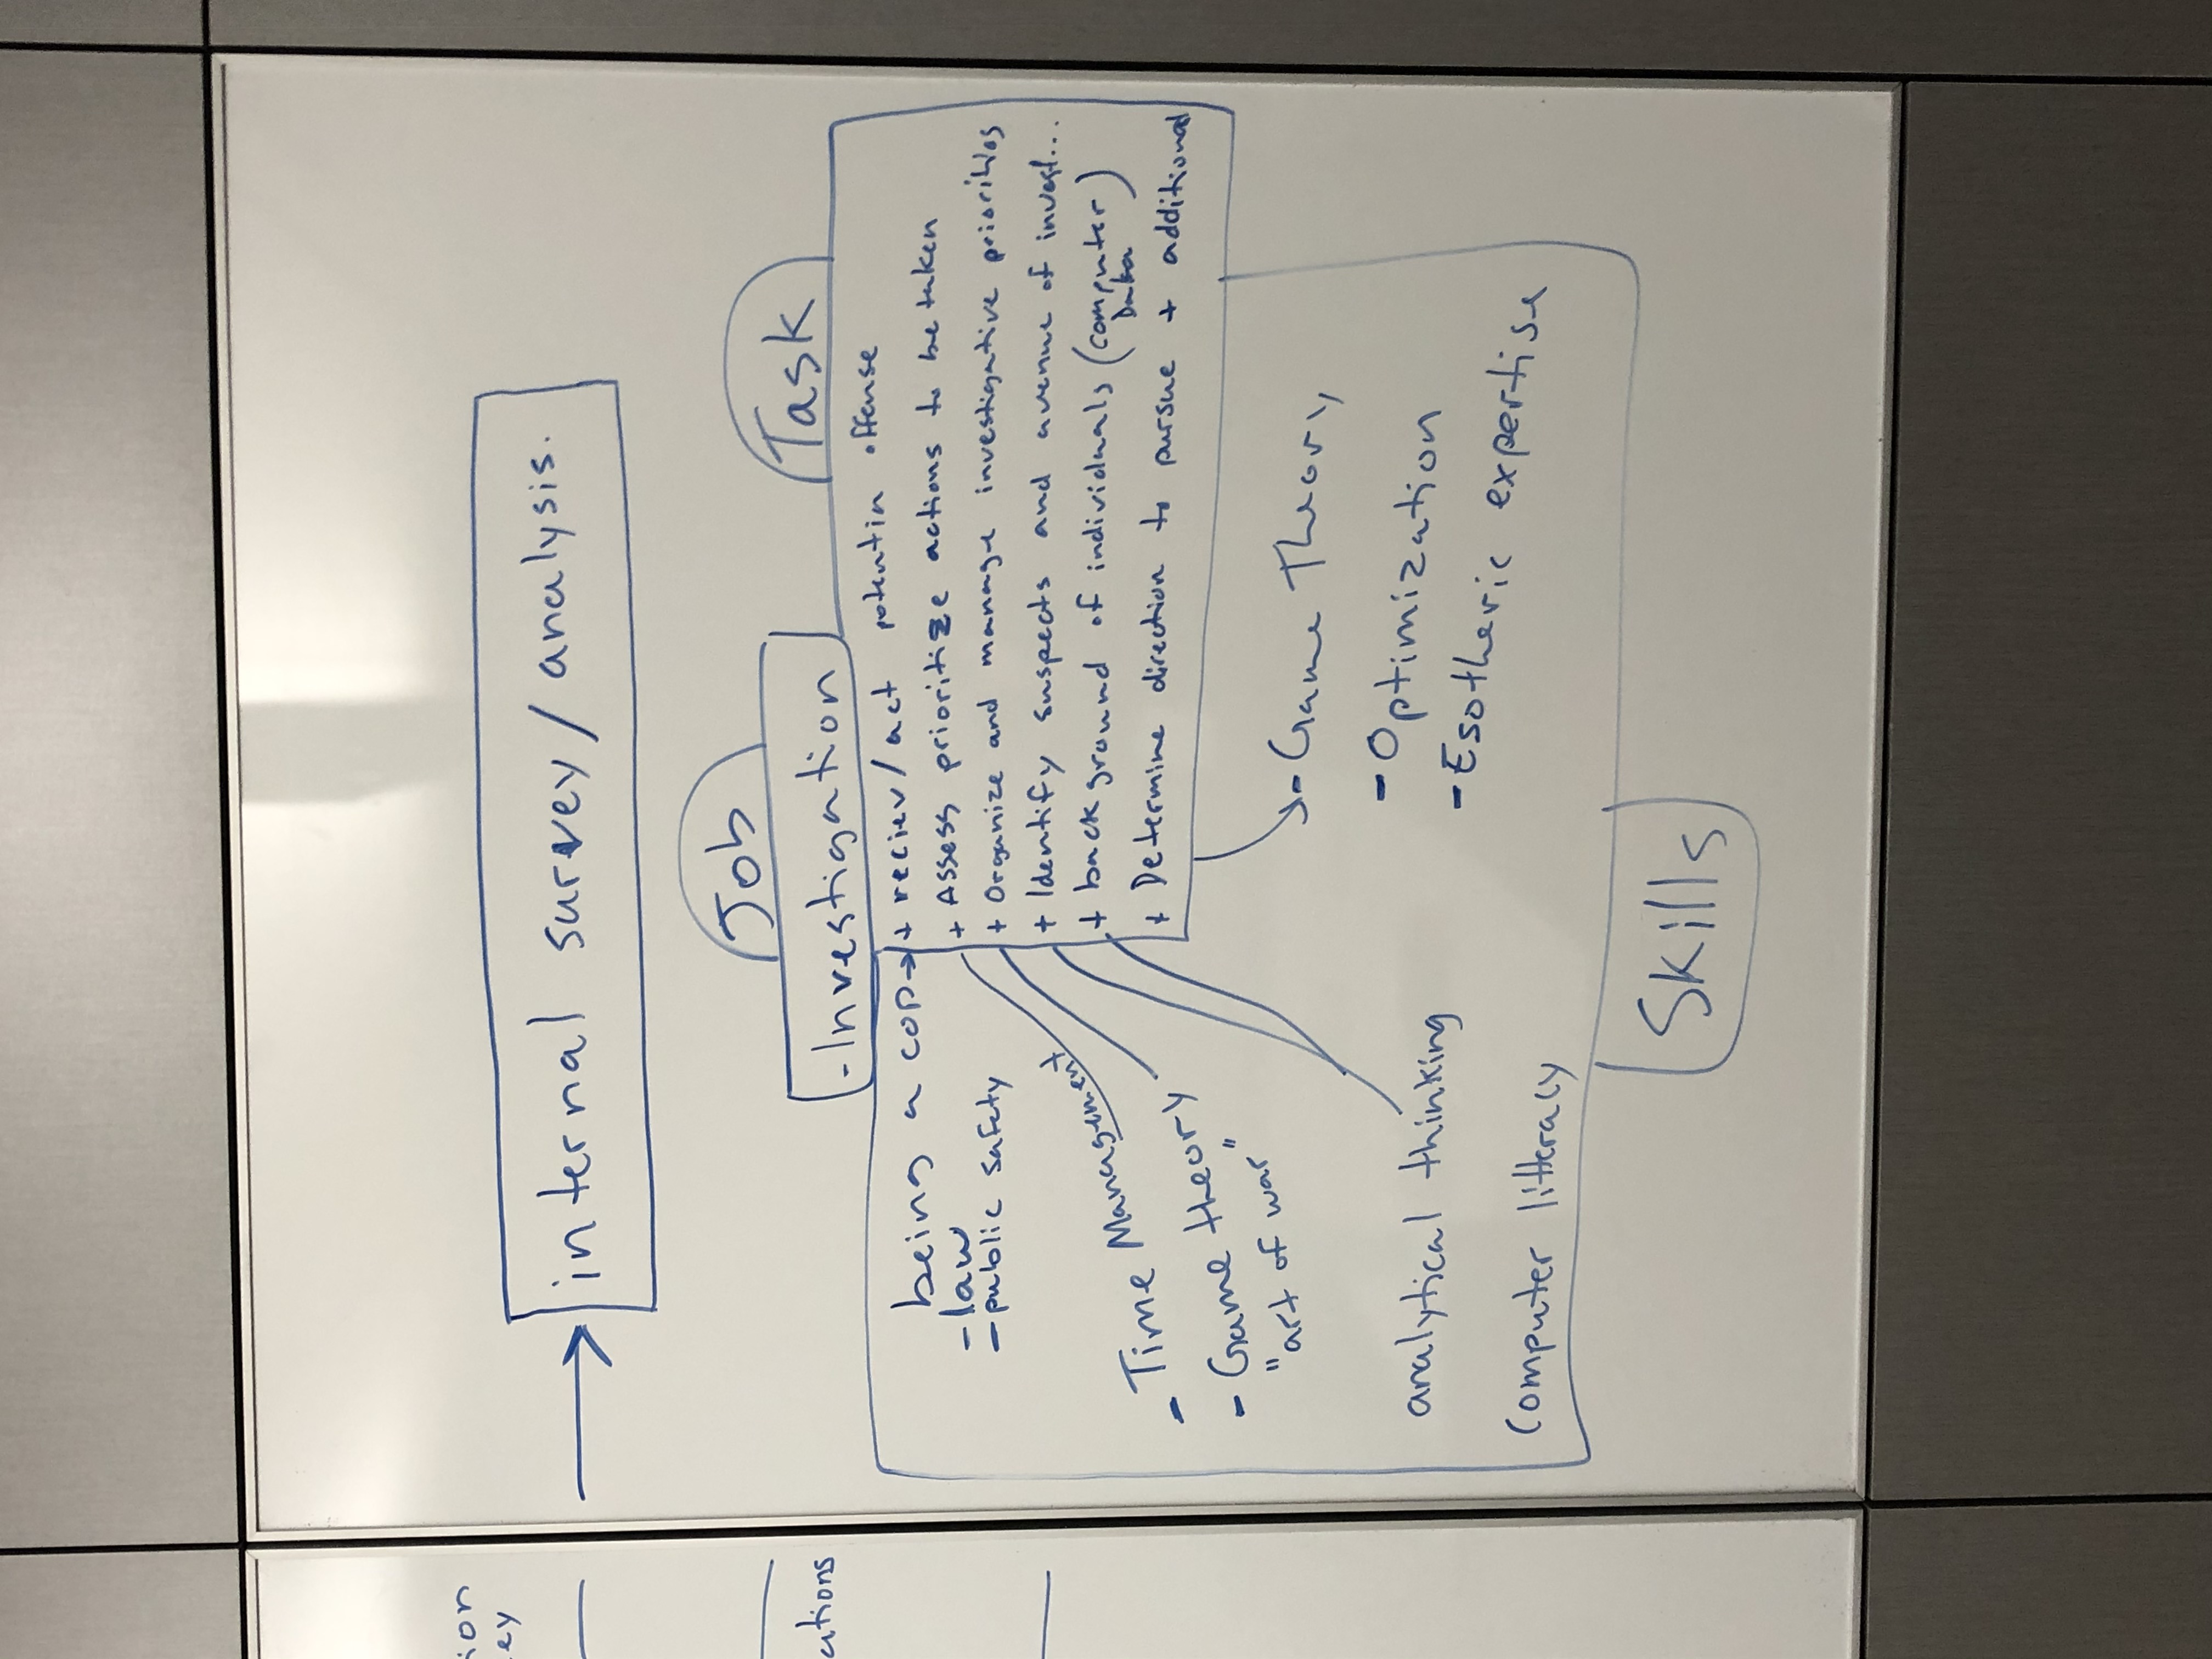 ion
ey
ations
internal survey / analysis.
Job
Task
- Investigation
being a cop
- law
- public safety
+ reciev/act potentin offense
+ Assess prioritize actions to be taken
+ Organize and manage investigative priorities
+ Identify suspects and avenue of invest...
+ background of individuals (computer Data)
+ Determine direction to pursue + additional
- Time Management
- Game theory
"art of war"
analytical thinking
computer litteracy
- Game Theory
- Optimization
- Esotheric expertise
Skills